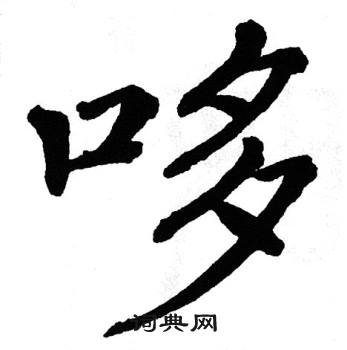 哆
词典网